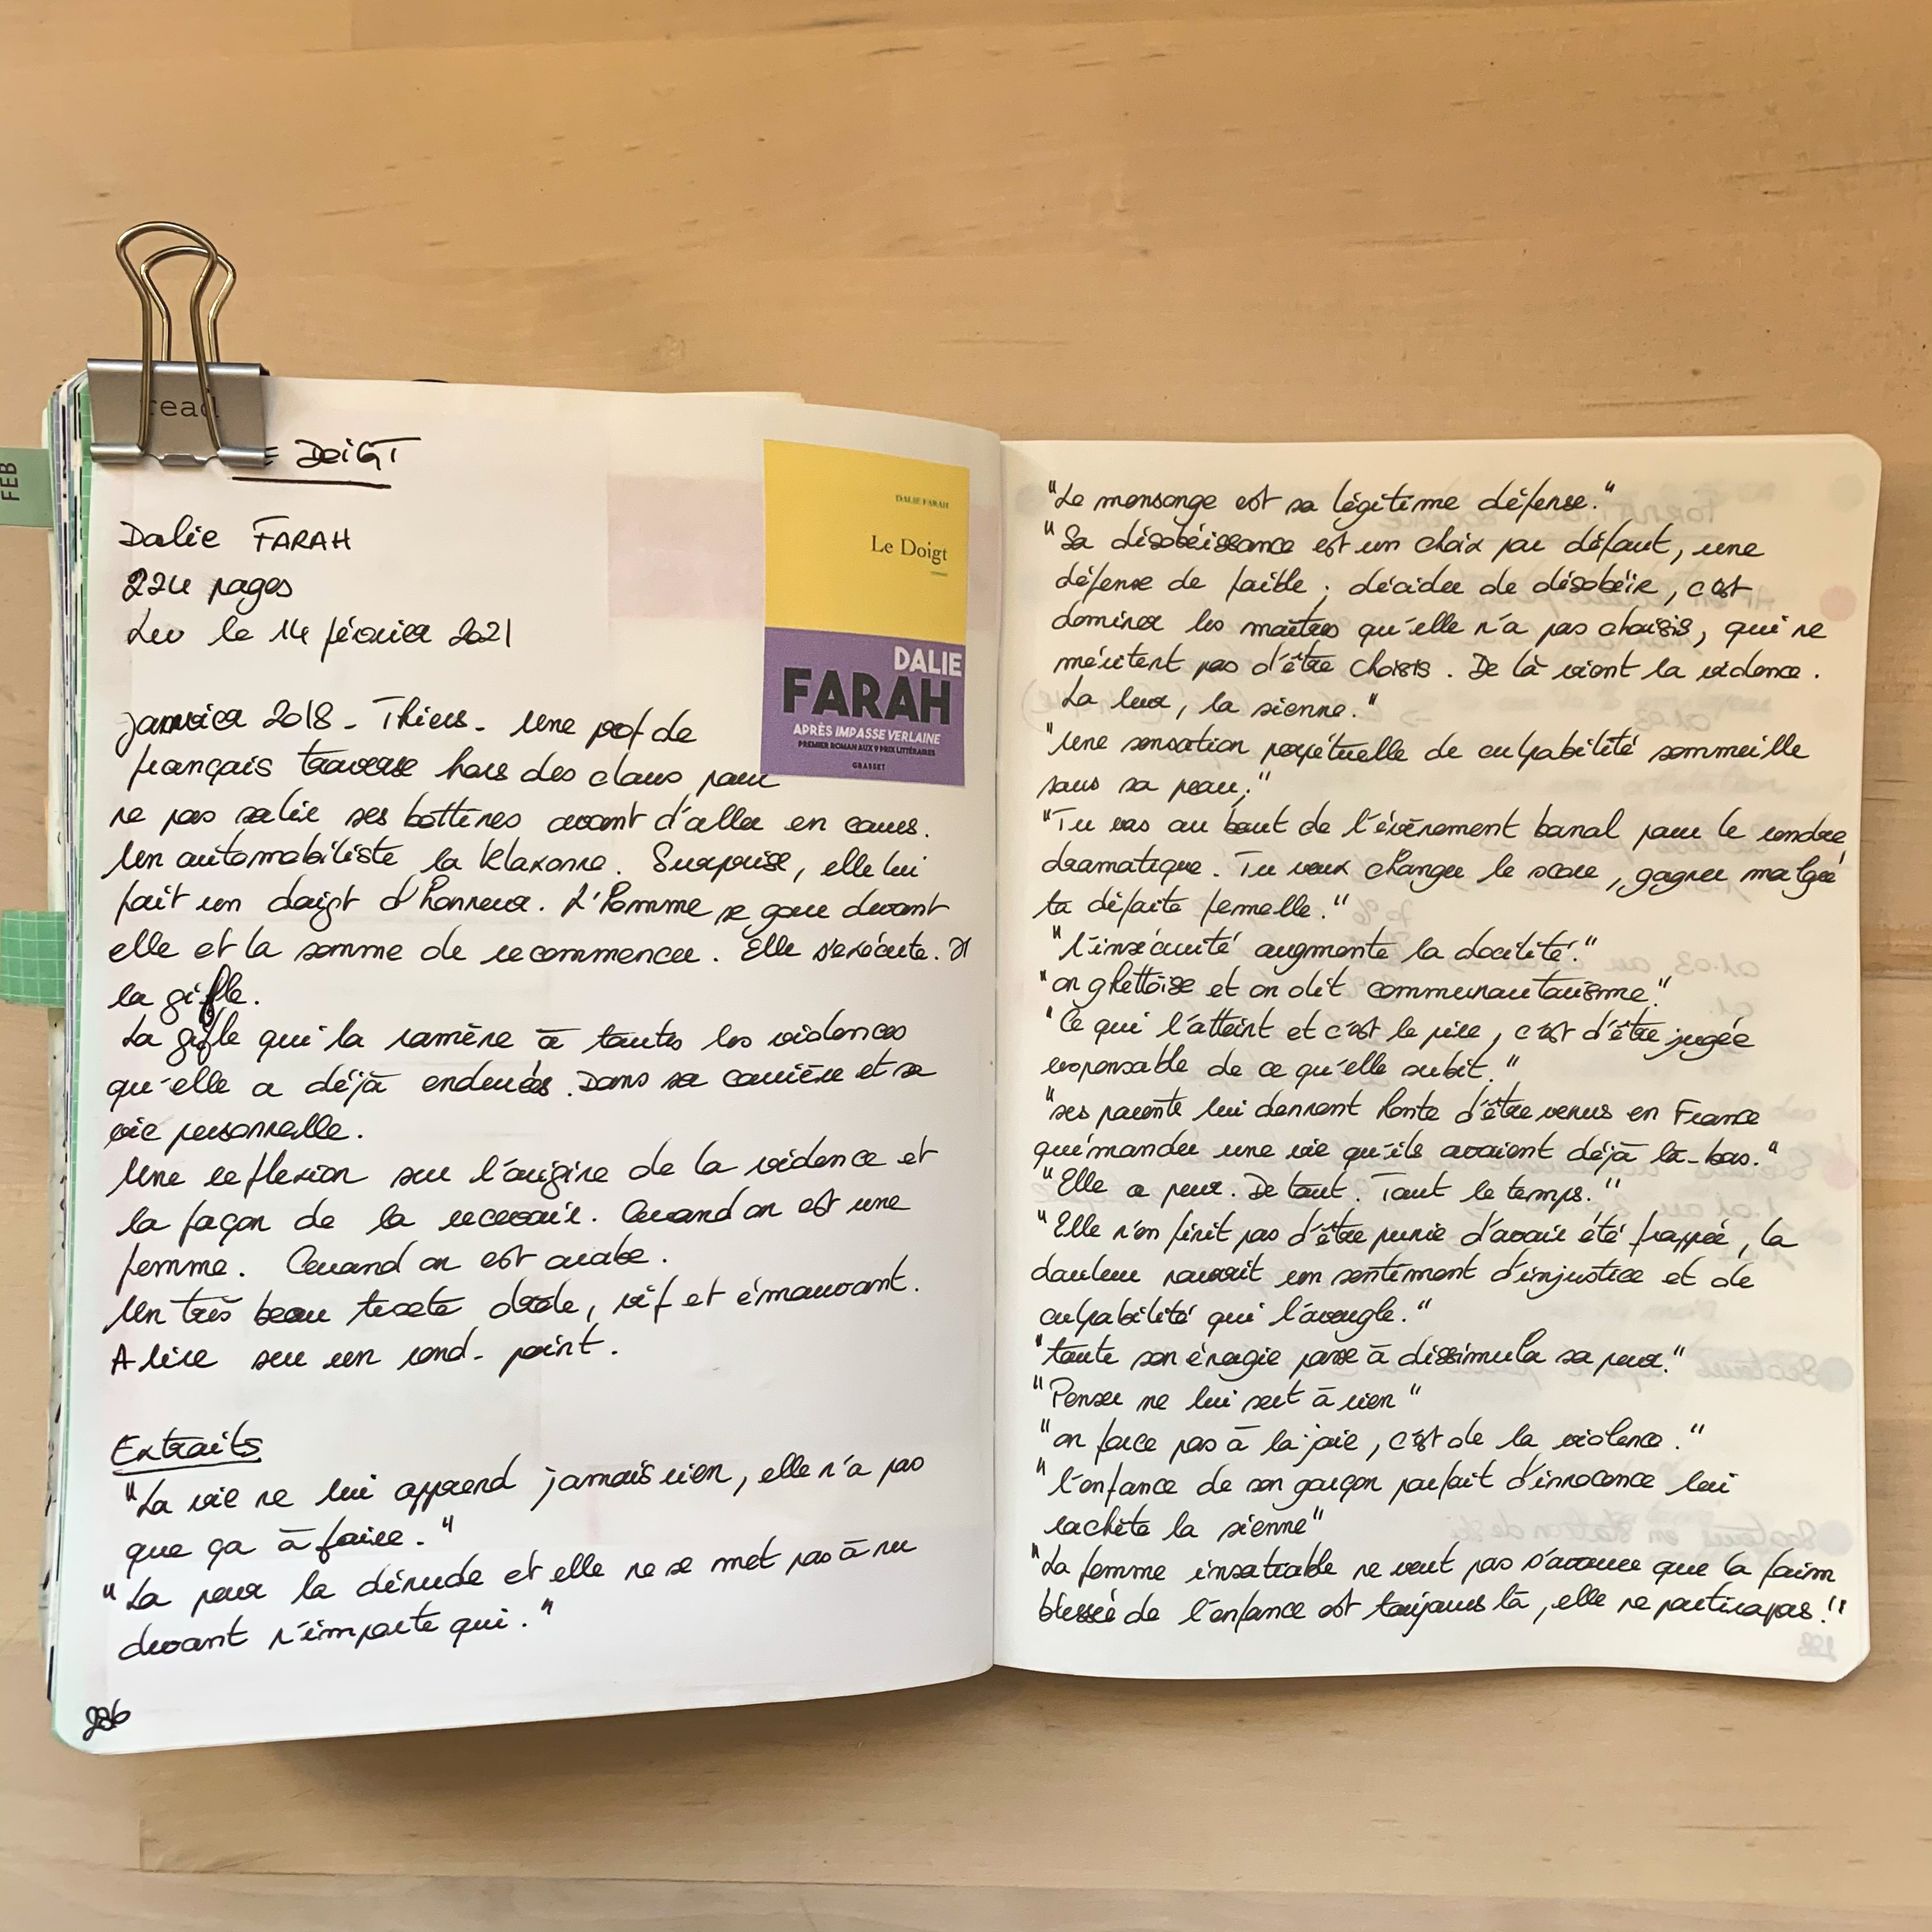 read
FEB
DOIGT
Dalie FARAH
224 pages
Lu le 14 février 2021
DALIE FARAH
Le Doigt
DALIE
FARAH
APRÈS IMPASSE VERLAINE
PREMIER ROMAN AUX 9 PRIX LITTÉRAIRES
GRASSET
Janvier 2018 - Thiers - Une prof de
français traverse hors des clous pour
ne pas salir ses bottines avant d'aller en cours.
Un automobiliste la klaxonne. Surprise, elle lui
fait un doigt d'honneur. L'homme se gare devant
elle et la somme de recommencer. Elle s'exécute. Il
la gifle.
La gifle qui la ramène à toutes les violences
qu'elle a déjà endurées. Dans sa carrière et sa
vie personnelle.
Une reflexion sur l'origine de la violence et
la façon de la recevoir. Quand on est une
femme. Quand on est arabe.
Un très beau texte drôle, vif et émouvant.
A lire sur un rond-point.
Extraits
"La vie ne lui apprend jamais rien, elle n'a pas
que ça à faire."
"La peur la dénude et elle ne se met pas à nu
devant n'importe qui."
236
"Le mensonge est sa légitime défense."
"Sa désobéissance est un choix par défaut, une
défense de faible ; décider de désobéir, c'est
dominer les maîtres qu'elle n'a pas choisis, qui ne
méritent pas d'être choisis. De là vient la violence.
La leur, la sienne."
"Une sensation perpétuelle de culpabilité sommeille
sous sa peau;"
"Tu vas au bout de l'évènement banal pour le rendre
dramatique. Tu veux changer le score, gagner malgré
ta défaite femelle."
"l'insécurité augmente la docilité."
"on ghettoïse et on dit communautarisme."
"Ce qui l'atteint et c'est le pire, c'est d'être jugée
responsable de ce qu'elle subit."
"ses parents lui donnent honte d'être venus en France
quémander une vie qu'ils avaient déjà là-bas."
"Elle a peur. De tout. Tout le temps."
"Elle n'en finit pas d'être punie d'avoir été frappée, la
douleur nourrit un sentiment d'injustice et de
culpabilité qui l'aveugle."
"toute son énergie passe à dissimuler sa peur."
"Penser ne lui sert à rien"
"on force pas à la joie, c'est de la violence."
"l'enfance de son garçon parfait d'innocence lui
rachète la sienne"
"La femme insatiable ne veut pas s'avouer que la faim
blessée de l'enfance est toujours là, elle ne partira pas."